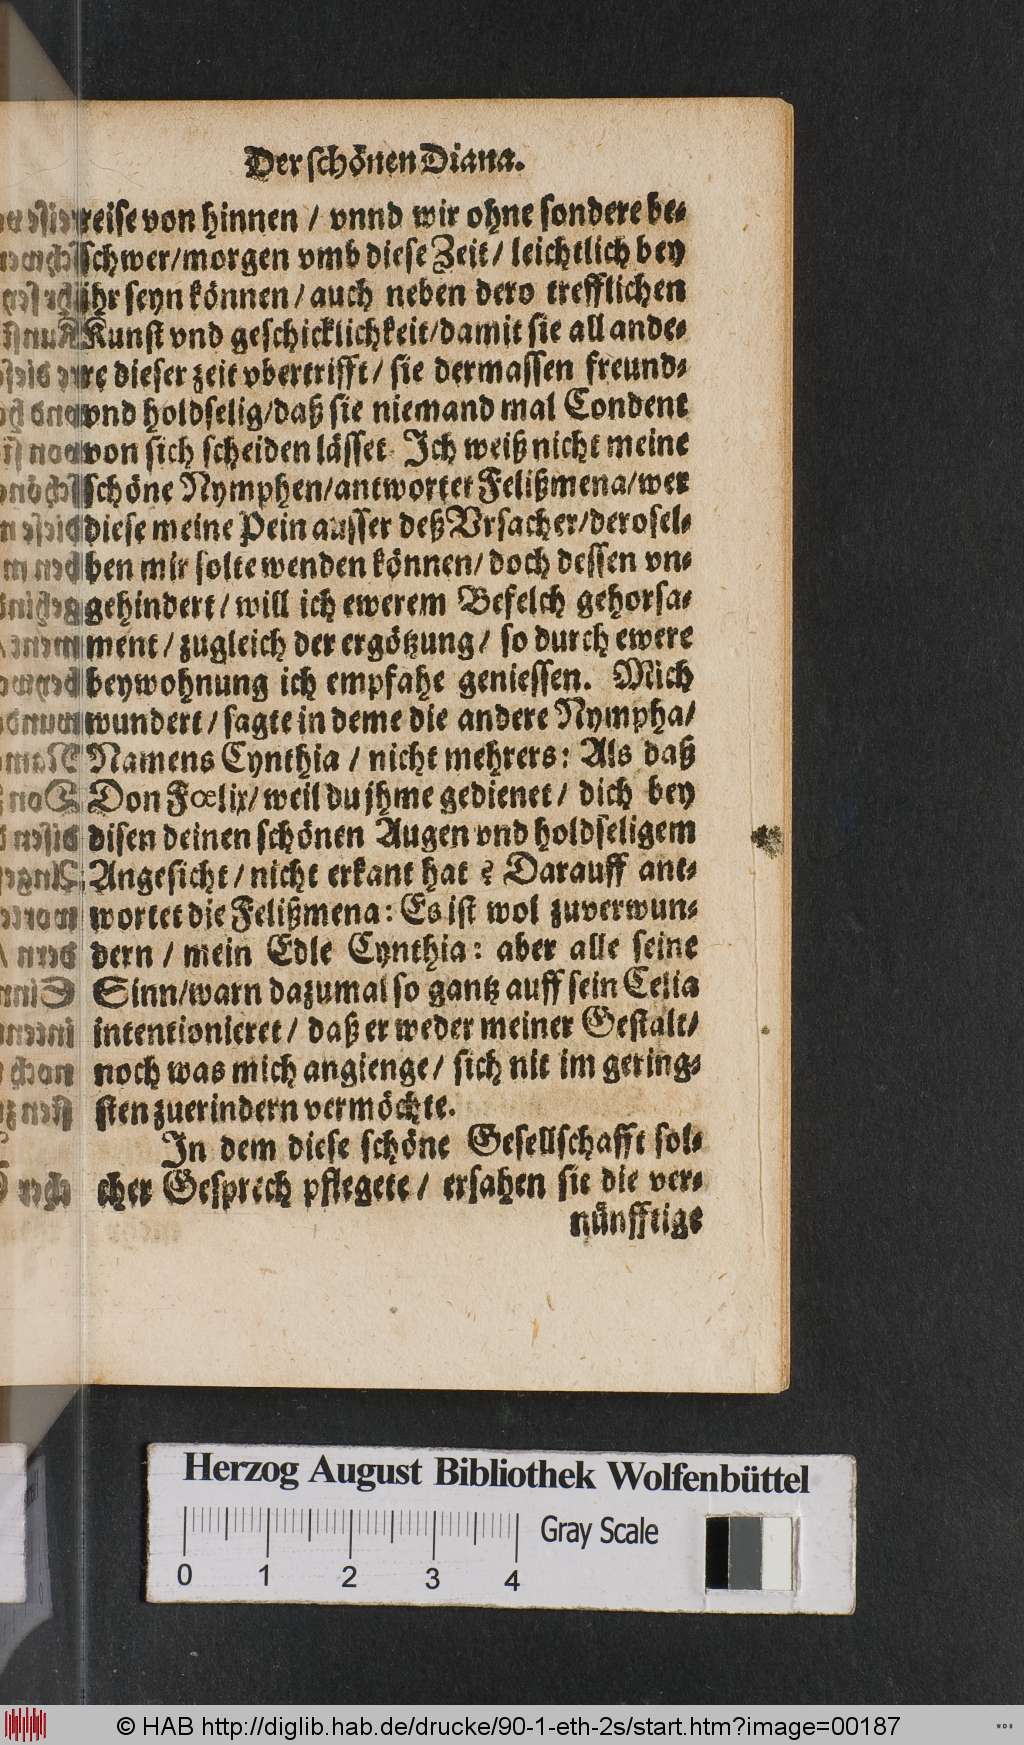 Der schönen Diana.
reise von hinnen / vnnd wir ohne sondere be-
schwer/morgen vmb diese Zeit / leichtlich bey
ihr seyn können / auch neben dero trefflichen
Kunst vnd geschicklichkeit/damit sie all ande-
re dieser zeit vbertrifft / sie dermassen freund-
vnd holdselig/daß sie niemand mal Condent
von sich scheiden lässet. Ich weiß nicht meine
schöne Nymphen/antwortet Felißmena/wer
diese meine Pein ausser deß Vrsacher/derosel-
ben mir solte wenden können/ doch dessen vn-
gehindert / will ich ewerem Befelch gehorsa-
ment / zugleich der ergötzung / so durch ewere
beywohnung ich empfahe geniessen. Mich
wundert / sagte in deme die andere Nympha/
Namens Cynthia / nicht mehrers: Als daß
Don Fœlix/ weil du jhme gedienet / dich bey
disen deinen schönen Augen vnd holdseligem
Angesicht / nicht erkant hat ? Darauff ant-
wortet die Felißmena: Es ist wol zuverwun-
dern / mein Edle Cynthia: aber alle seine
Sinn/warn dazumal so gantz auff sein Celia
intentionieret / daß er weder meiner Gestalt/
noch was mich angienge / sich nit im gering-
sten zuerindern vermöchte.
In dem diese schöne Gesellschafft sol-
cher Gesprech pflegete / ersahen sie die ver-
nünfftige
Herzog August Bibliothek Wolfenbüttel
0 1 2 3 4
Gray Scale
© HAB http://diglib.hab.de/drucke/90-1-eth-2s/start.htm?image=00187